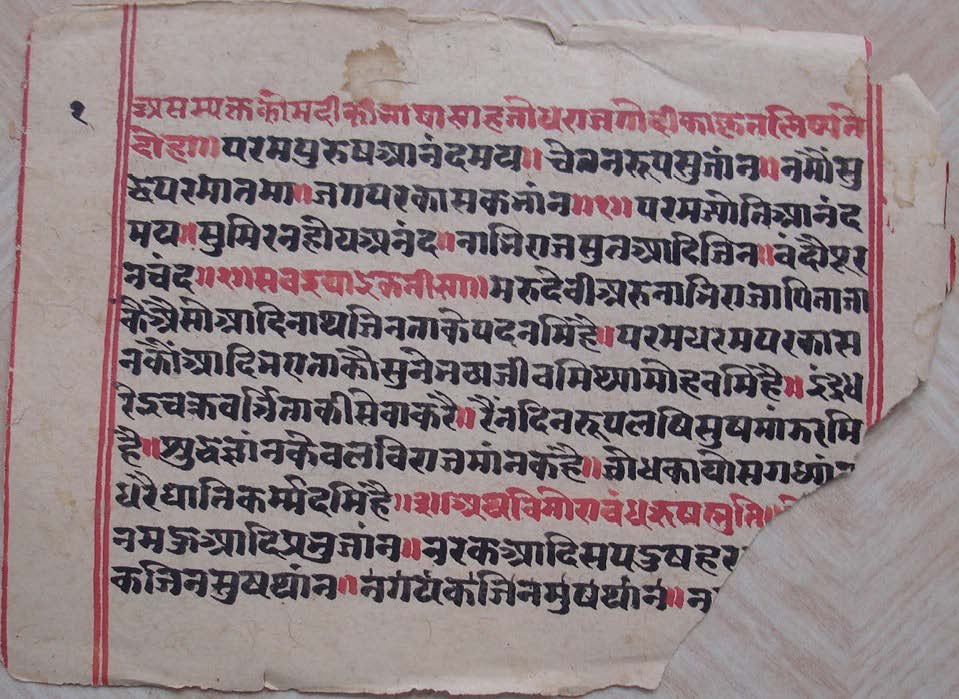 १
अथ सम्यक्त कौमदी की भाषा साह जोधराज गोदीका कृत लिष्यते
दोहा॥ परम पुरुष आनंदमय॥ चेतन रूप सुजांन॥ नमौं सु
द्ध परमातमा॥ जग परकासक भांन॥१॥ परम जोति आनंद
मय॥ सुमिरन होय अनंद॥ नाभिराज सुत आदि जिन॥ वंदौं पूर
न चंद॥२॥ सवइया इकतीसा॥ मरुदेवी अरु नाभिराजा पिता जा
कै ऐसो आदिनाथ जिन ताके पद नमिंहै॥ परम धरम परकास
न कौं आदि भए ताकौ सुनै भव्य जीव मिथ्या मोह वमिंहै॥ इंद्र ध
र चक्रवर्त्ति ताकी सेवा करै॥ रैंन दिन रूप लषि सुष मांझ रमि
है॥ शुद्ध ज्ञांन केवल विराजमांन कहै॥ जोध काया सग ध्यां
धरै घाति कर्म्म दमिंहै॥३॥ अथ
नमऊ आदि प्रभु जांन॥ नरक आदि सप दुष हर
क जिन सुष थांन॥ नग एक जिन सुष थांन॥ न